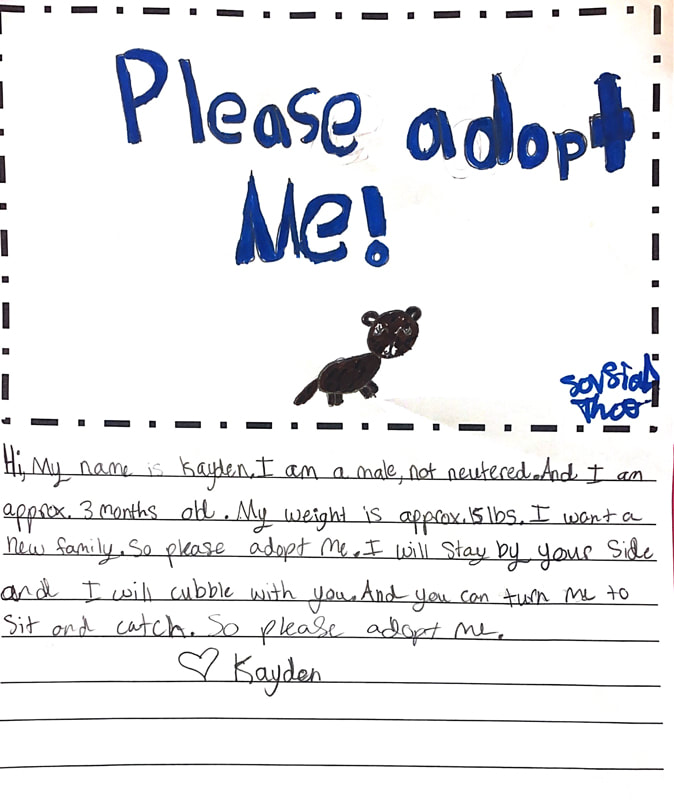 Please adopt
Me!
Thao
Hi, My name is Kayden. I am a male, not neutered. And I am
approx. 3 months old. My weight is approx. 15 lbs. I want a
new family. So please adopt me. I will stay by your side
and I will cubble with you. And you can turn me to
Sit and catch. So please adopt me.
♡ Kayden